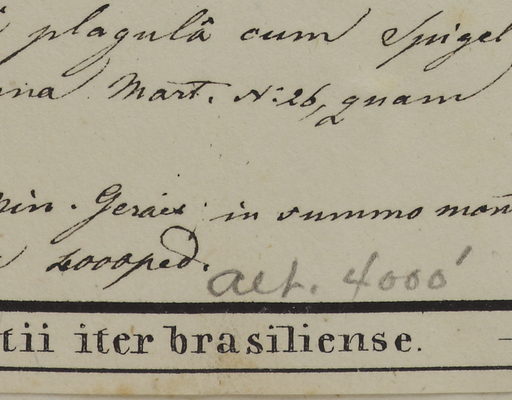 plagulâ cum Spigel
na Mart. N. 26, quam
Min. Geraës in summo mon
4000 ped.
alt. 4000'
tii iter brasiliense.